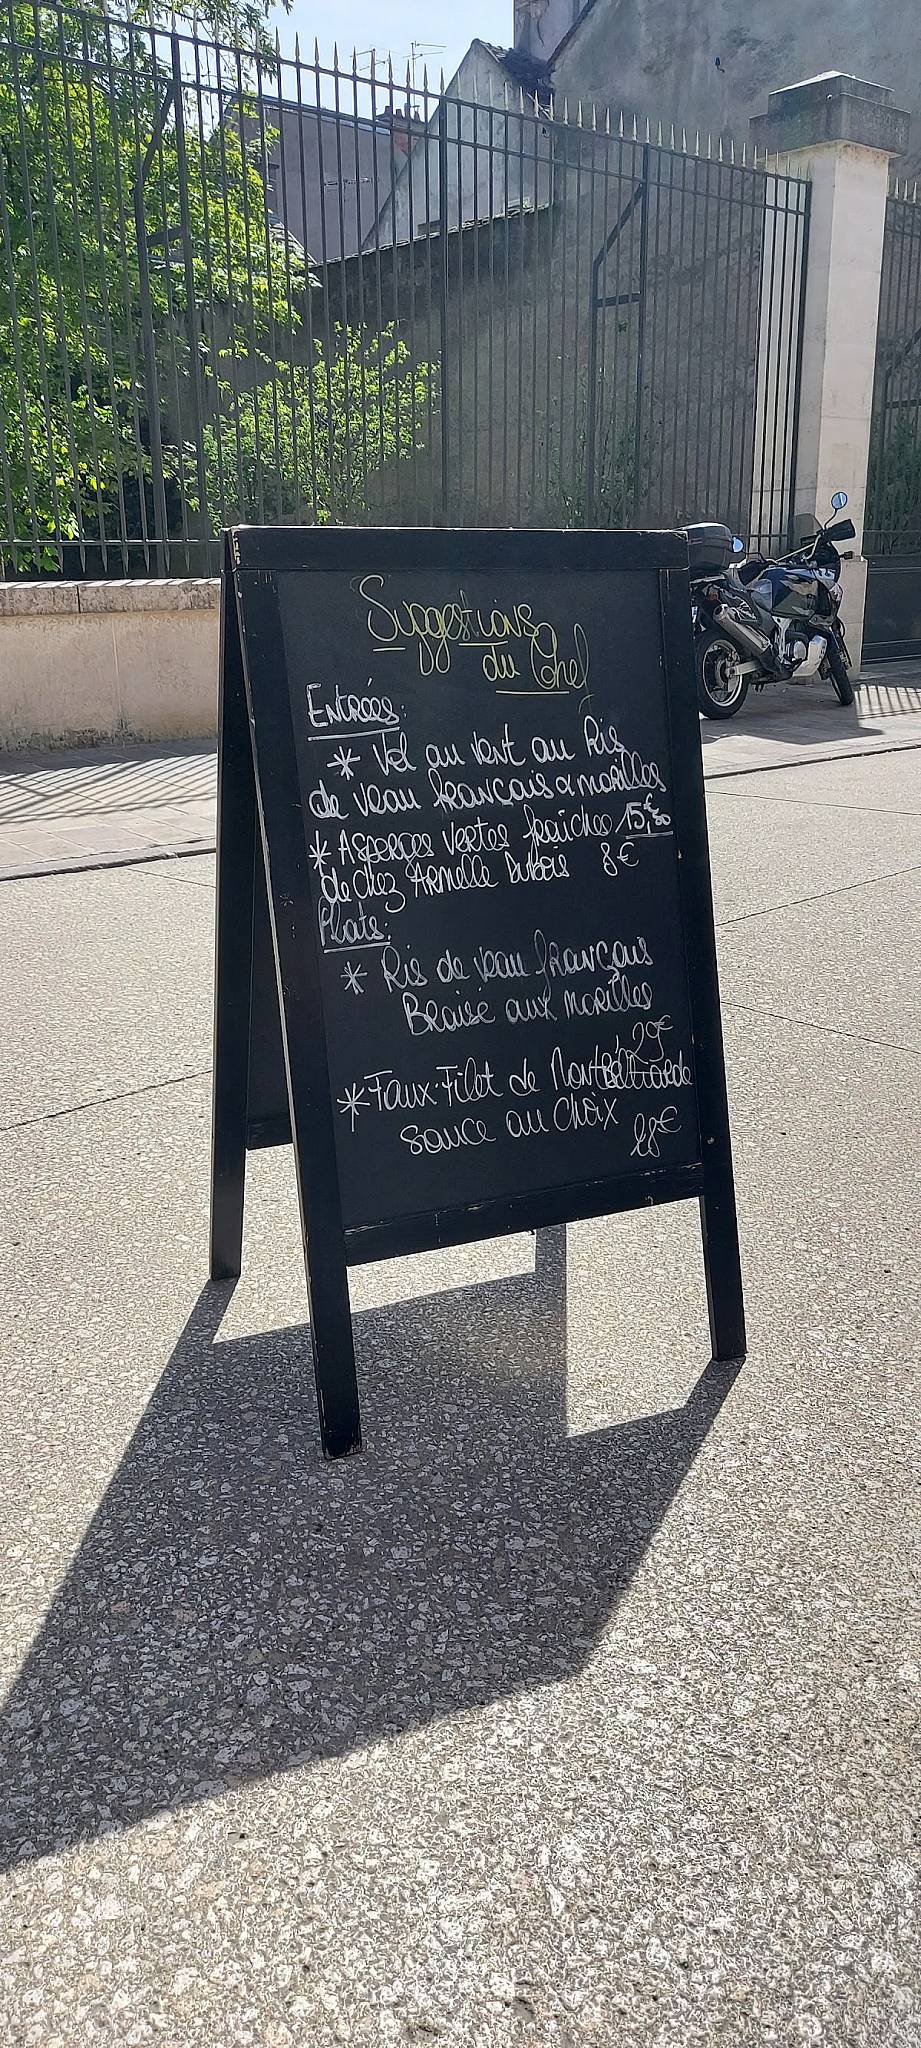 Suggestions
du Chef
Entrées:
* Vol au Vent au Ris
de veau français & morilles
* Asperges vertes fraîches 15,50€
de chez Armelle Dubois 8€
Plats:
* Ris de veau français
Braisé aux Morilles
29€
* Faux-Filet de Montbéliarde
Sauce au Choix
28€